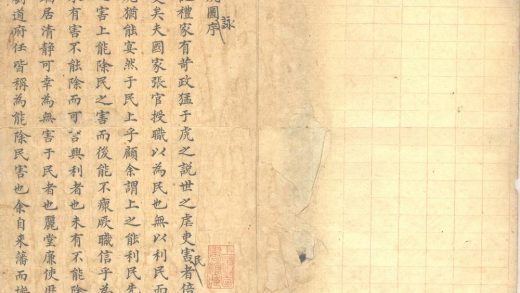 圖序
詠
禮家有苛政猛于虎之說世之虐吏害者倍
民
矣夫國家張官授職以為民也無以利民而
猶能宴然于民上乎顧余謂上之能利民先
之害上能除民之害而後能不瘝厥職信乎為
有害不能除而可言興利者也未有不能除
居清靜可幸為無害于民者也麗堂廉使歷
道府任皆稱為能除民害也余自来藩而